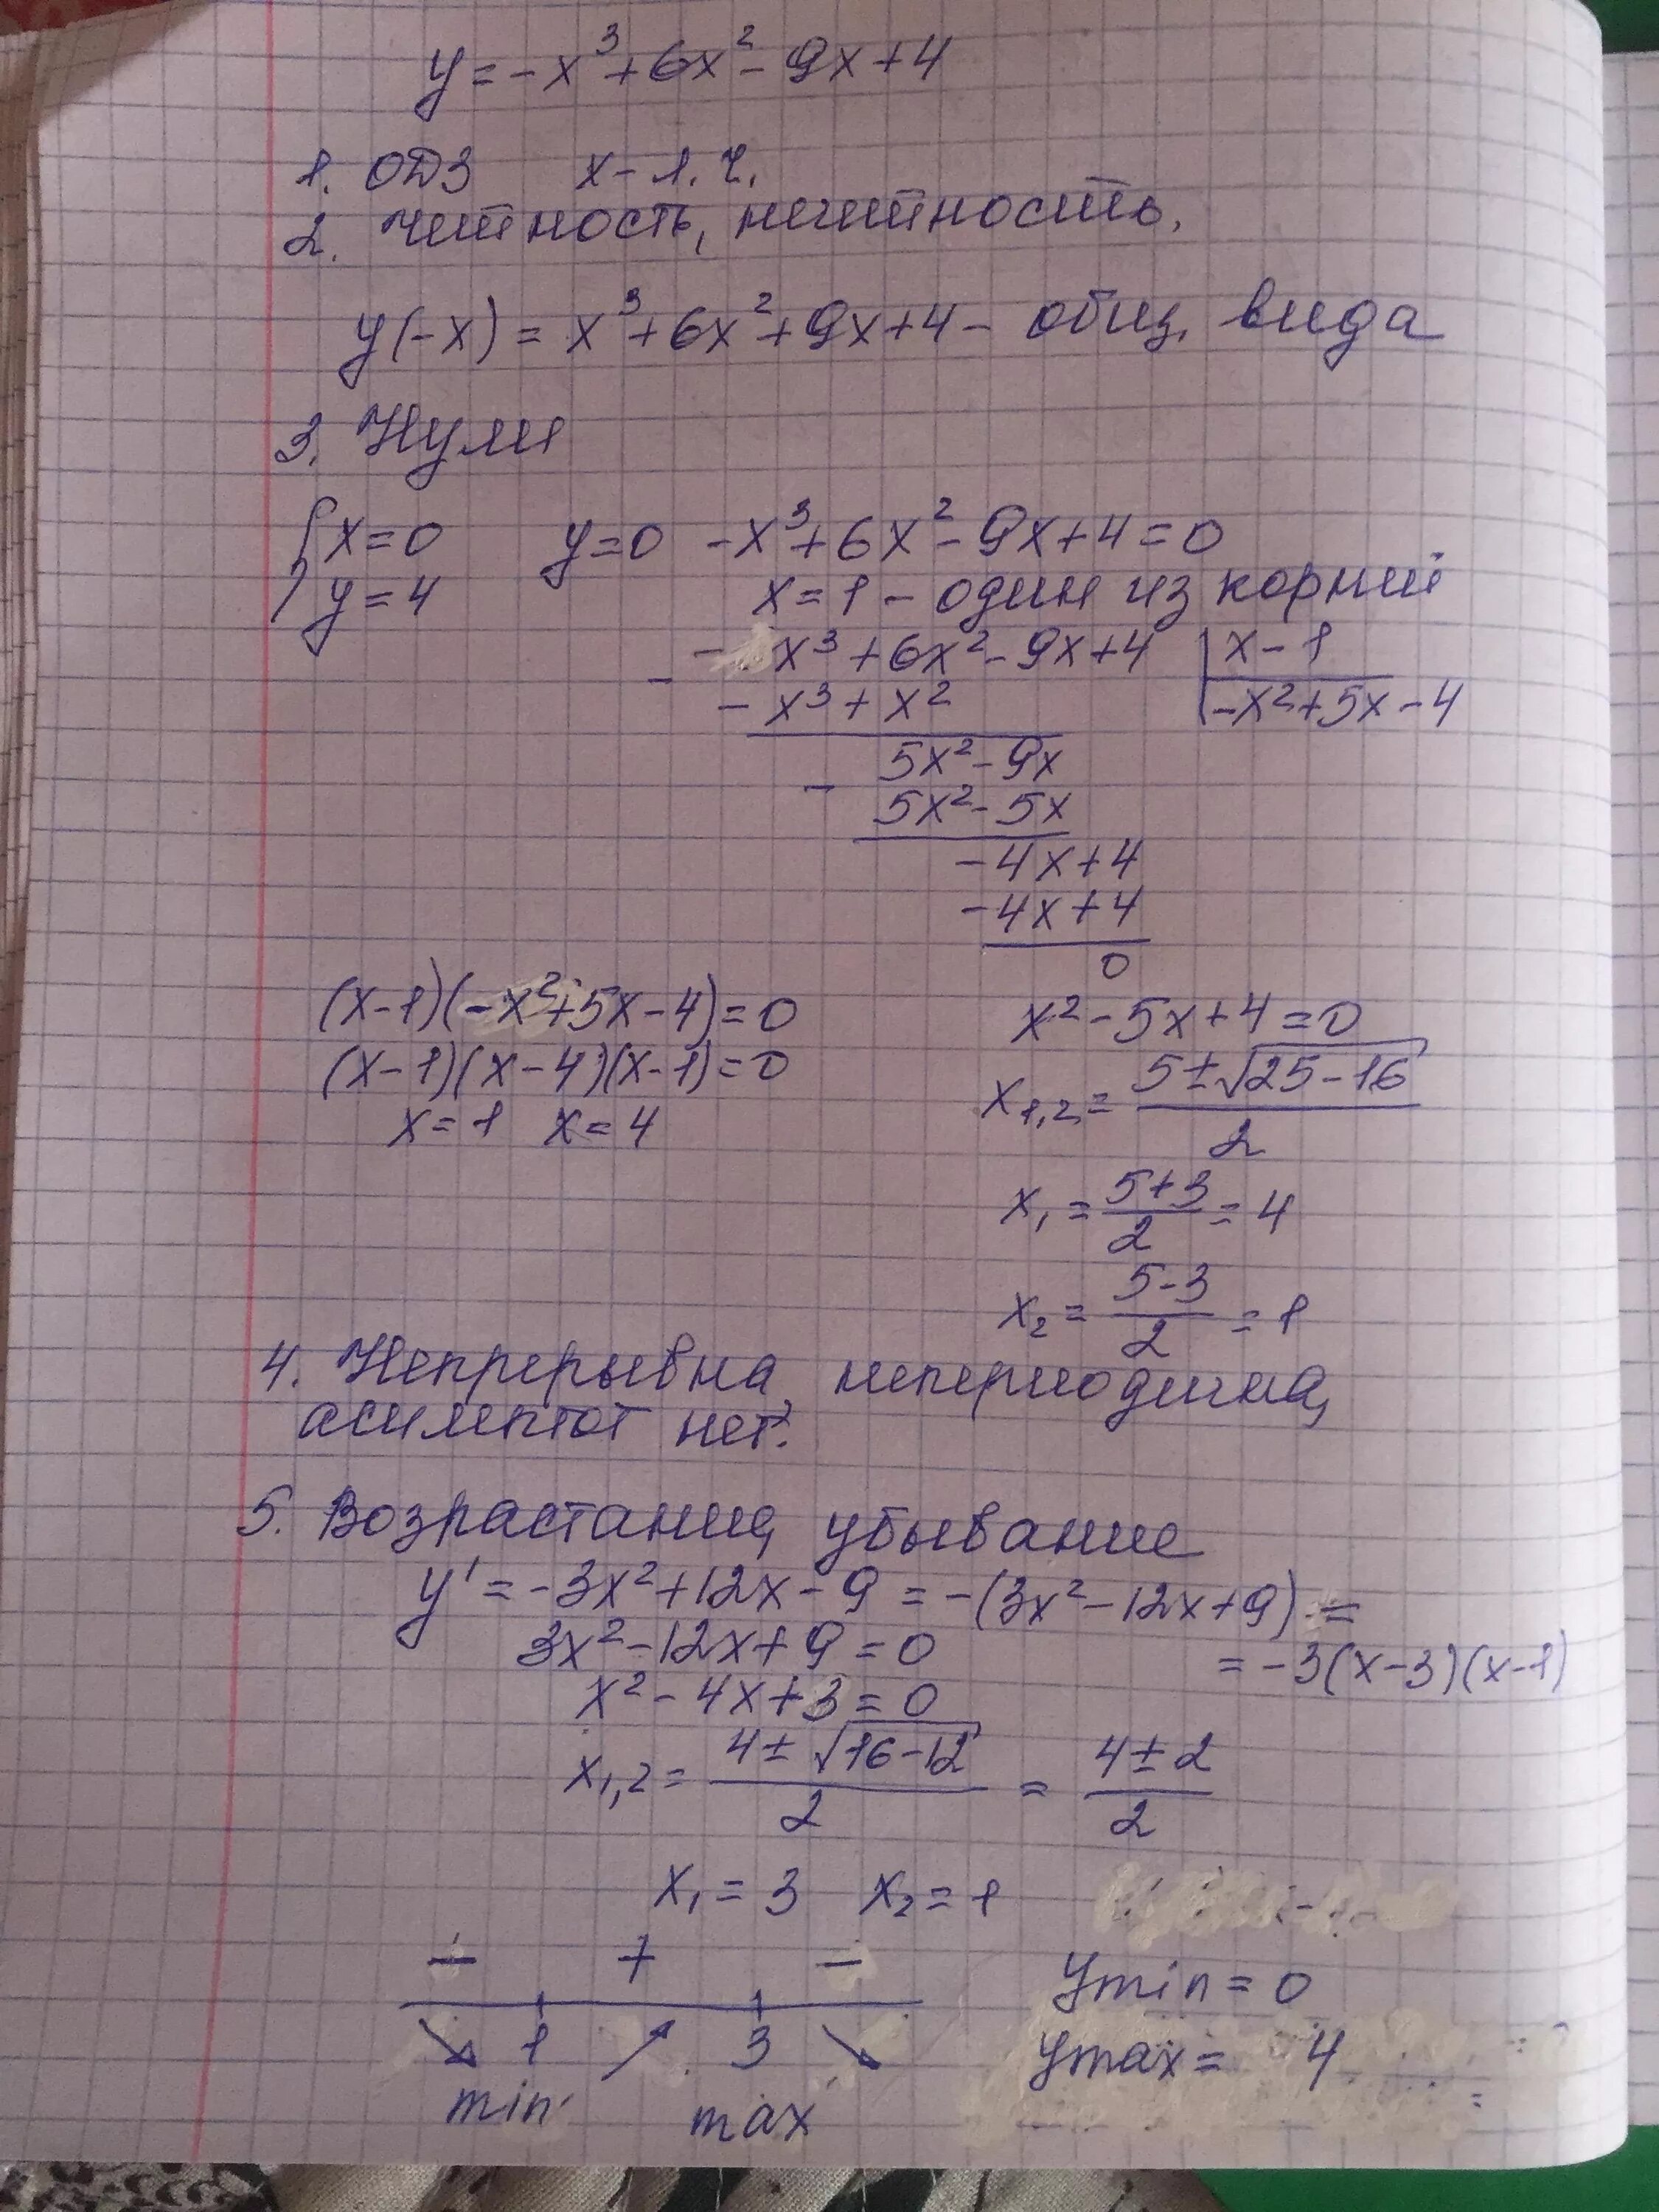 y = -x³ + 6x² - 9x + 4
1. ОДЗ x - л. ч.
2. Четность, нечетность.
y(-x) = x³ + 6x² + 9x + 4 - общ. вида
3. Нули
{ x = 0 y = 0 -x³ + 6x² - 9x + 4 = 0
y = 4 x = 1 - один из корней
- x³ + 6x² - 9x + 4 | x - 1
- - x³ + x² | -x² + 5x - 4
5x² - 9x
- 5x² - 5x
-4x + 4
-4x + 4
0
(x-1)(-x²+5x-4) = 0
(x-1)(x-4)(x-1) = 0
x = 1 x = 4
x² - 5x + 4 = 0
x1,2 = (5 ± √25-16) / 2
x₁ = (5+3)/2 = 4
x₂ = (5-3)/2 = 1
4. Непрерывна, непериодична,
асимптот нет.
5. Возрастание, убывание
y' = -3x² + 12x - 9 = -(3x² - 12x + 9) =
= -3(x-3)(x-1)
3x² - 12x + 9 = 0
x² - 4x + 3 = 0
x1,2 = (4 ± √16-12) / 2 = (4 ± 2) / 2
x₁ = 3 x₂ = 1
- + -
↘ 1 ↗ 3 ↘
min max
ymin = 0
ymax = 4